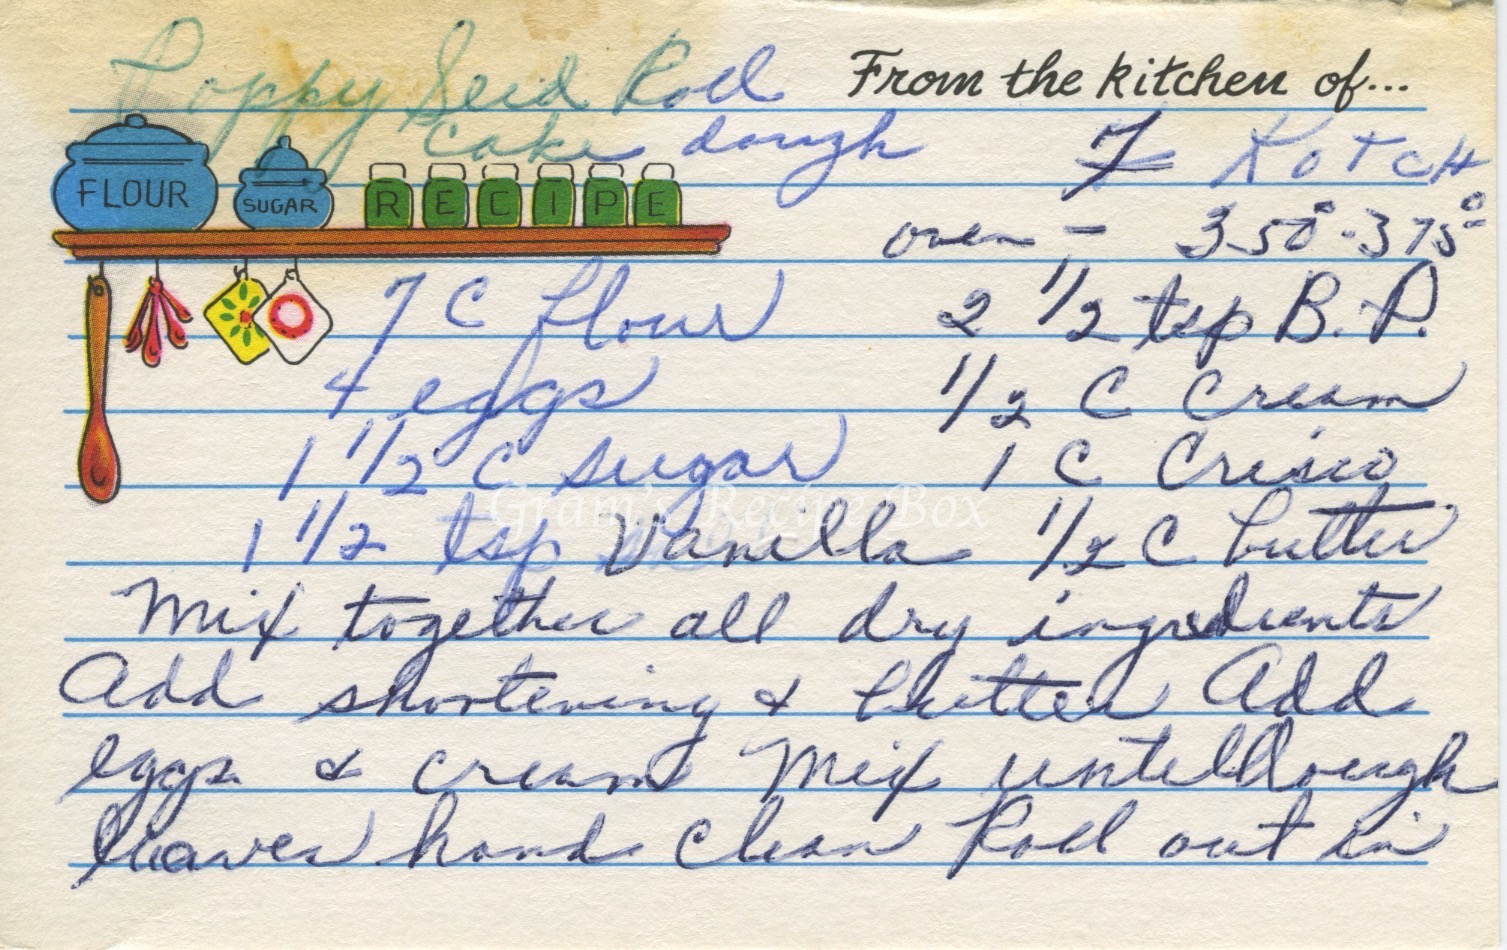 Poppy Seed Roll
cake dough
From the kitchen of...
KOTCH
FLOUR
SUGAR
RECIPE
oven - 350° - 375°
7 C flour
2 1/2 tsp B.P.
4 eggs
1/2 C Cream
1 1/2 C sugar
1 C Crisco
Gram's Recipe Box
1 1/2 tsp Vanilla
1/2 C butter
Mix together all dry ingredients
Add shortening & butter Add
eggs & cream Mix until dough
leaves hand clean Roll out in